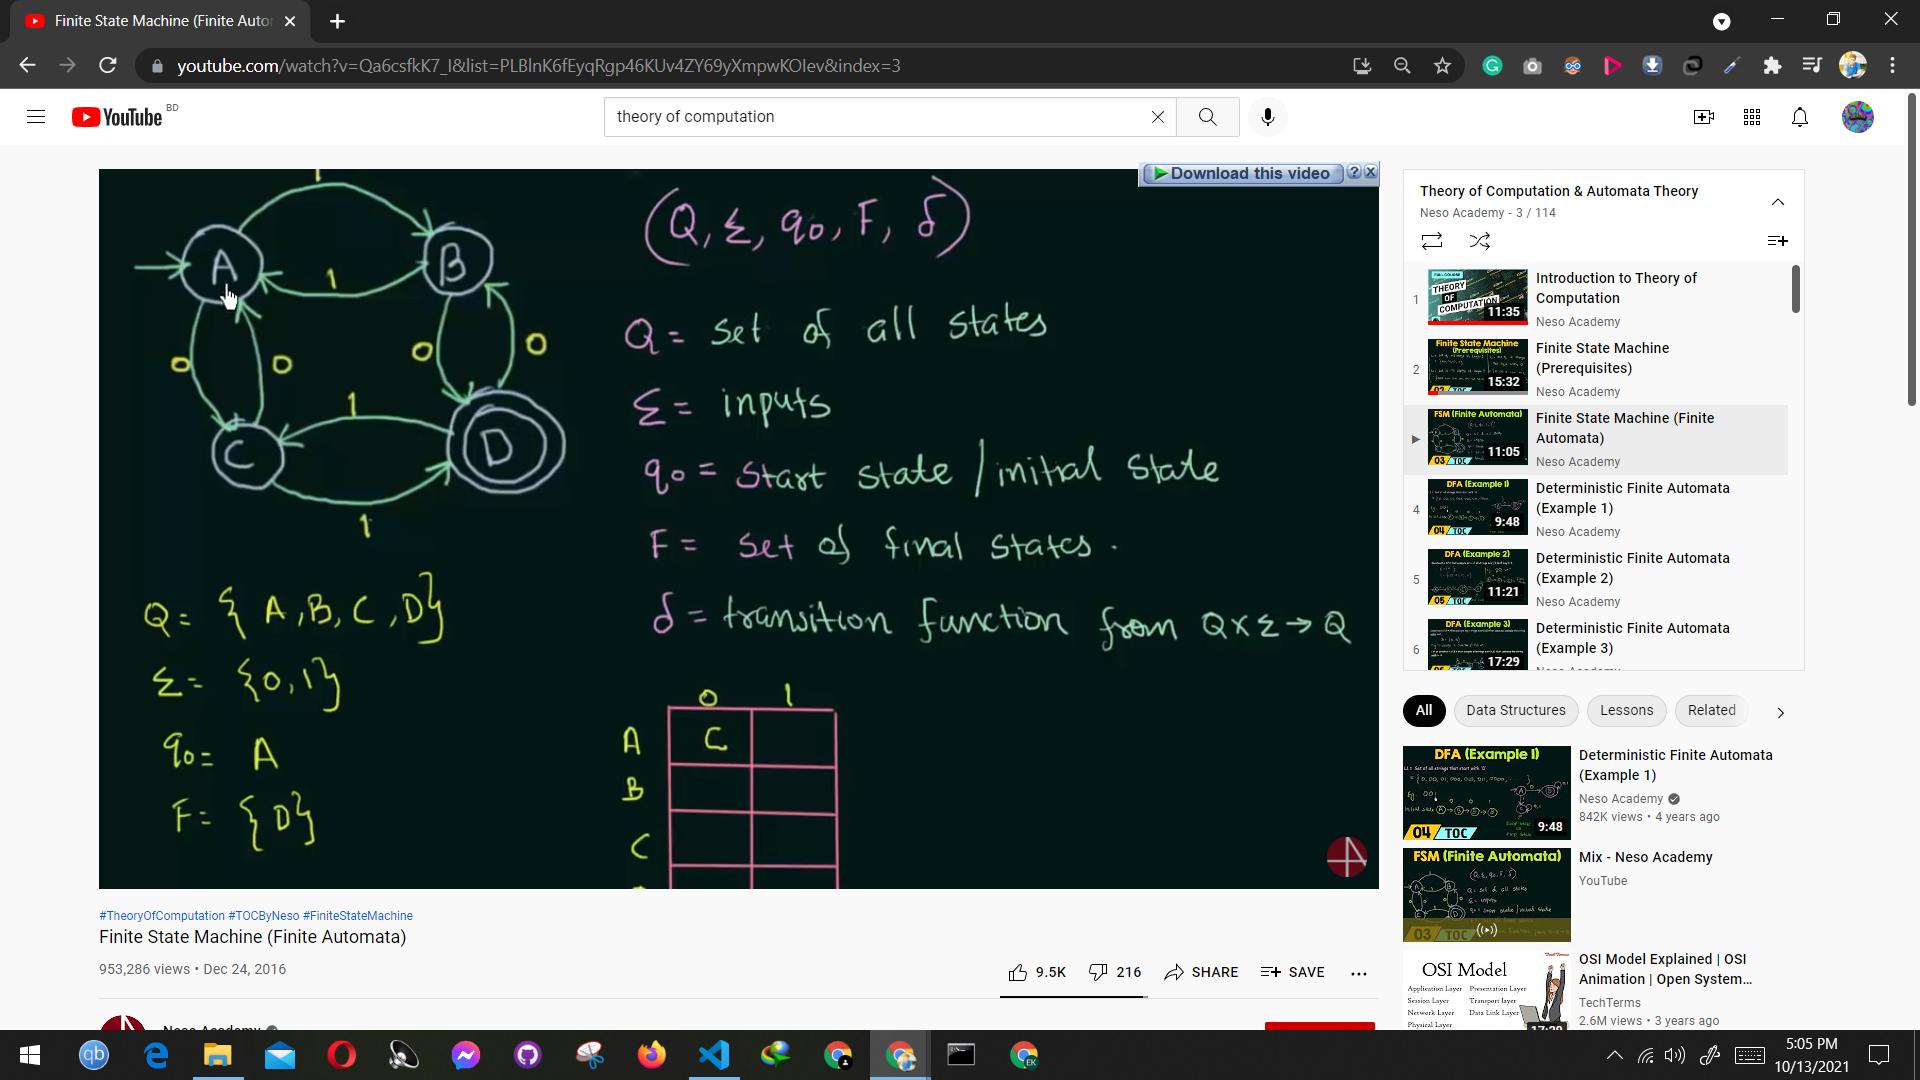 Finite State Machine (Finite Auto
youtube.com/watch?v=Qa6csfkK7_I&list=PLBlnK6fEyqRgp46KUv4ZY69yXmpwKOIev&index=3
YouTube BD
theory of computation
Download this video ? x
1
A
B
1
0
0
0
0
1
C
D
1
(Q, Σ, q0, F, δ)
Q = set of all states
Σ = inputs
q0 = start state / initial state
F = set of final states.
δ = transition function from Q×Σ→Q
Q = { A, B, C, D}
Σ = {0,1}
q0 = A
F = {D}
0 1
A C
B
C
#TheoryOfComputation #TOCByNeso #FiniteStateMachine
Finite State Machine (Finite Automata)
953,286 views • Dec 24, 2016
9.5K 216 SHARE SAVE
Neso Academy
Theory of Computation & Automata Theory
Neso Academy - 3 / 114
1
FULL COURSE
THEORY
OF
COMPUTATION
11:35
Introduction to Theory of
Computation
Neso Academy
2
Finite State Machine
(Prerequisites)
15:32
Finite State Machine
(Prerequisites)
Neso Academy
FSM (Finite Automata)
03 TOC
11:05
Finite State Machine (Finite
Automata)
Neso Academy
4
DFA (Example 1)
04 TOC
9:48
Deterministic Finite Automata
(Example 1)
Neso Academy
5
DFA (Example 2)
05 TOC
11:21
Deterministic Finite Automata
(Example 2)
Neso Academy
6
DFA (Example 3)
17:29
Deterministic Finite Automata
(Example 3)
All
Data Structures
Lessons
Related
DFA (Example 1)
04 TOC
9:48
Deterministic Finite Automata
(Example 1)
Neso Academy
842K views • 4 years ago
FSM (Finite Automata)
03 TOC
Mix - Neso Academy
YouTube
OSI Model
Application Layer Presentation Layer
Session Layer Transport layer
Network Layer Data Link Layer
Physical Layer
OSI Model Explained | OSI
Animation | Open System...
TechTerms
2.6M views • 3 years ago
qb
EK
5:05 PM
10/13/2021